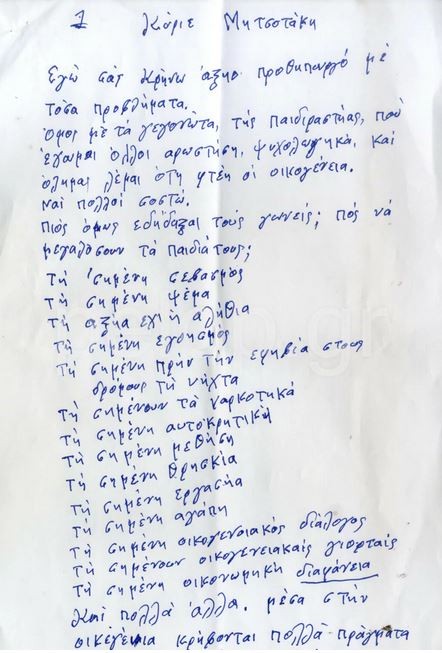 1 Κύριε Μητσοτάκη
Εγώ σας κρήνω άξηο προθηπουργό με
τόσα προβλήματα.
όμος με τά γεγονώτα, τής παιδιραστήας, πού
έγωμαι όλλοι αρωστήση, ψυχολωγηκά, καί
όλημαι λέμαι ότη φτέη οι οικογένεια.
ναί πολλοί σοστώ.
πιός όμως εδήδαξαι τους γωνείς; πός νά
μεγαλόσουν τά παιδιάτους;
τή σημένη σεβασμος
τή σημένη ψέμα
τή αξήα έχι ή αλήθια
τή σημένη εγοησμός
τή σημένη πρήν τήν εφηβία στους
δρόμους τή νήχτα
τή σημένουν τά ναρκοτικά
τή σημένη αυτοκρητική
τή σημένη μεθήση
τή σημένη θρησκία
τή σημένη εργασήα
τή σημένη αγάπη
τή σημένη οικογενειακός διάλογος
τή σημένουν οικογενειακαίς γιορταίς
τή σημένη οικονωμηκή διαφάνεια
καί πολλά άλλα. μέσα στήν
οικέγένια κρήβονται πολλά πράγματα